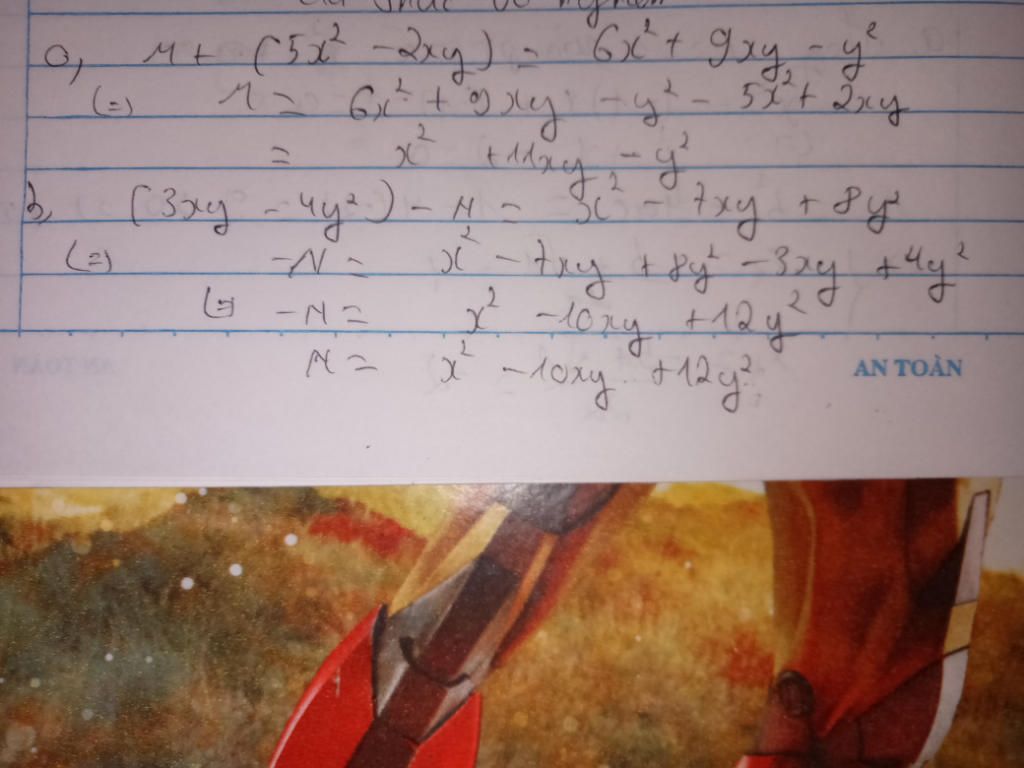 a, M + (5x² - 2xy) = 6x² + 9xy - y²
(=) M = 6x² + 9xy - y² - 5x² + 2xy
= x² + 11xy - y²
b, (3xy - 4y²) - N = x² - 7xy + 8y²
(=) -N = x² - 7xy + 8y² - 3xy + 4y²
(=) -N = x² - 10xy + 12y²
N = x² - 10xy + 12y²
AN TOÀN